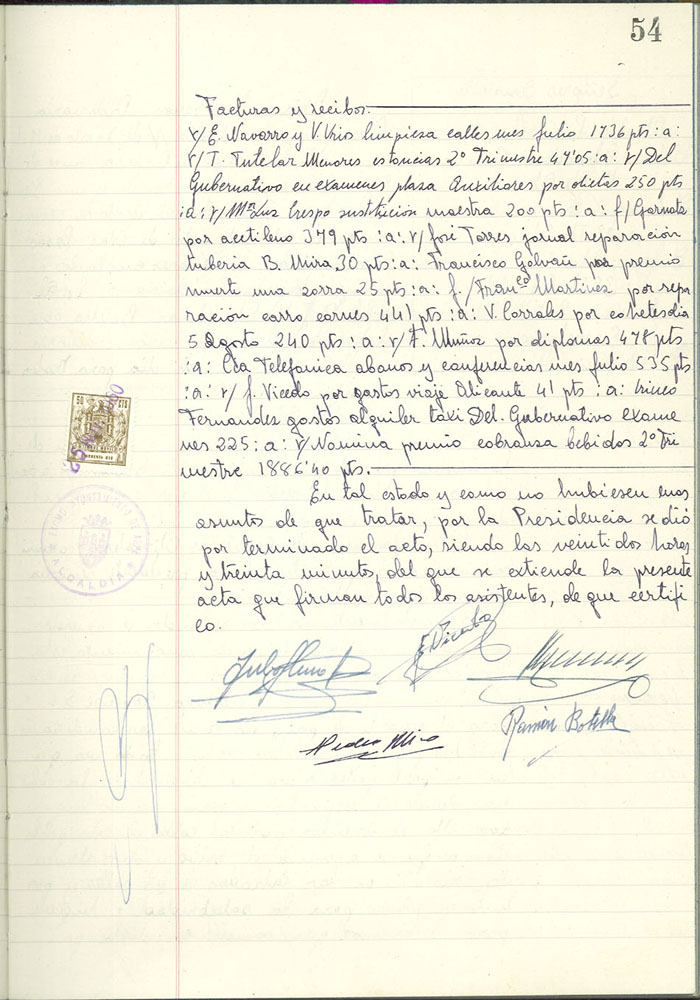 54
Facturas y recibos.
r/E. Navarro y V. Vrios limpieza calles mes Julio 1736 pts :a:
r/T. Tutelar Menores estancias 2º Trimestre 47'05 :a: r/Del
Gubernativo en examenes plaza Auxiliares por dietas 250 pts
:a: r/Mª Luz Crespo sustitución maestra 200 pts :a: f/Garnata
por acetileno 379 pts :a: r/José Torres jornal reparación
tuberia B. Mira, 30 pts :a: Francisco Galvañ por premio
muerte una zorra 25 pts :a: f/Franco Martinez por repa
ración carro carnes 441 pts :a: V. Corrales por cohetes dia
5 Agosto 240 pts :a: r/A. Muñoz por diplomas 478 pts
:a: Cia Telefonica abonos y conferencias mes julio 535 pts
:a: r/J. Vicedo por gastos viaje Alicante 41 pts :a: Irineo
Fernandez gastos alquiler taxi Del. Gubernativo exame
nes 225 :a: r/Nomina premio cobranza bebidos 2º Tri
mestre 1886'40 pts.
En tal estado y como no hubiesen mas
asuntos de que tratar, por la Presidencia se dió
por terminado el acto, siendo las veintidos horas
y treinta minutos, del que se extiende la presente
acta que firman todos los asistentes, de que certifi
co.
50 CTS
AYUNTAMIENTO DE
ALCALDIA
Ramón Botella
Pedro Miro